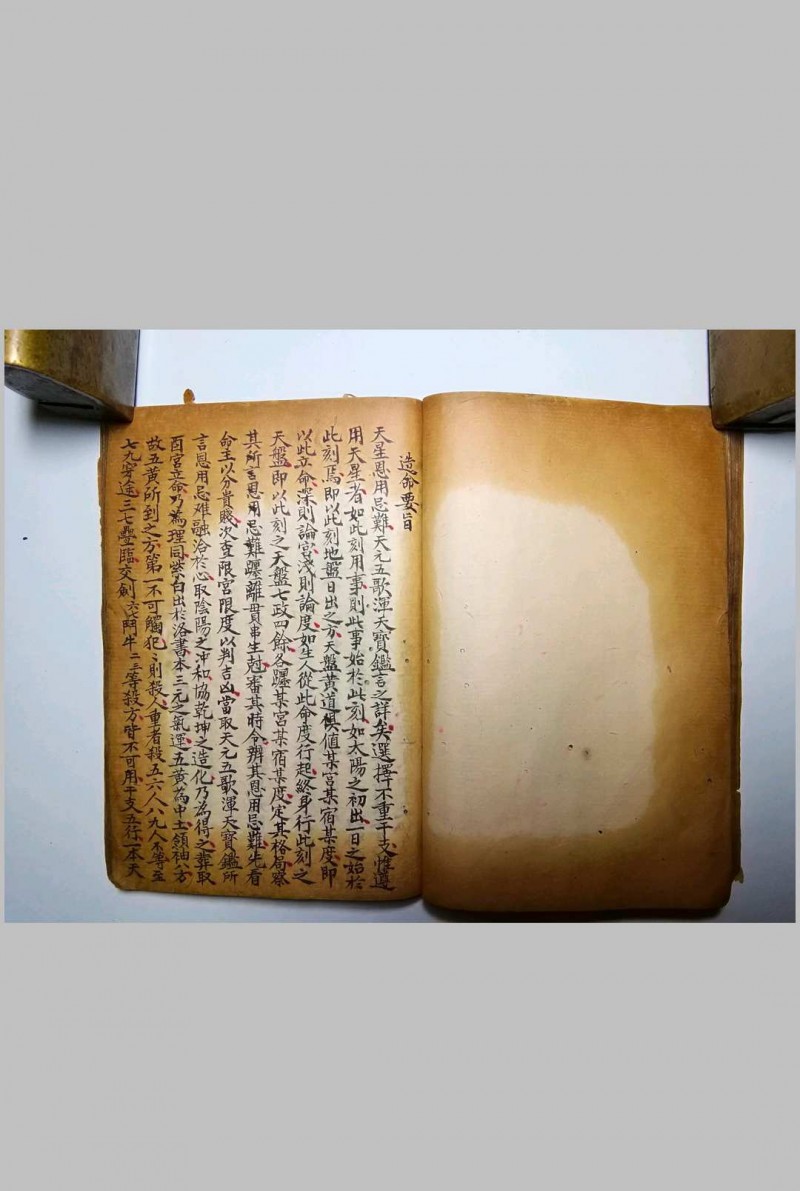 造命要旨
天星恩用忌難天元五歌渾天寶鑑言之詳矣選擇不重干支惟選
用天星者如此刻用事則此事始於此刻如太陽之初出一日之始於
此刻焉即以此刻地盤日出之方天盤黃道俱值某宮某宿某度即
以此立命深則論宮淺則論度如生人從此命度行起終身行此刻之
天盤即以此刻之天盤七政四餘各躔某宮某宿某度定其格局察
其所言恩用忌難躔離貫串生尅審其時令辨其恩用忌難先看
命主以分貴賤次查限宮限度以判吉凶當取天元五歌渾天寶鑑所
言恩用忌难融洽於心取陰陽之冲和協乾坤之造化乃為得之葬取
酉宮立命乃為理同紫白出於洛書本三元之氣運五黃為中土領袖八方
故五黃所到之方第一不可觸犯〻則殺人重者殺五六人八九人不等至
七九穿途三七疊臨交劍六七鬥牛二三等殺方皆不可用干支五行一本天